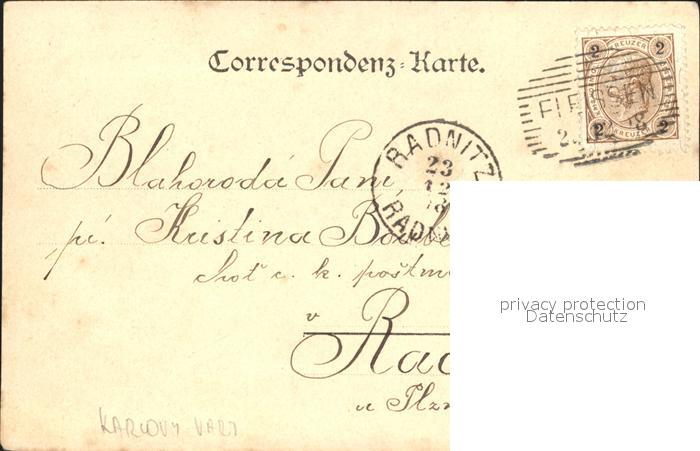 Correspondenz-Karte.
2 KREUZER 2
2 KREUZER 2
RADNITZ
23
12
RADN
Blahorodá Paní,
pí. Kristina
choť c. k. poštm
v
Rad
u Plzn
privacy protection
Datenschutz
KARLOVY VARY